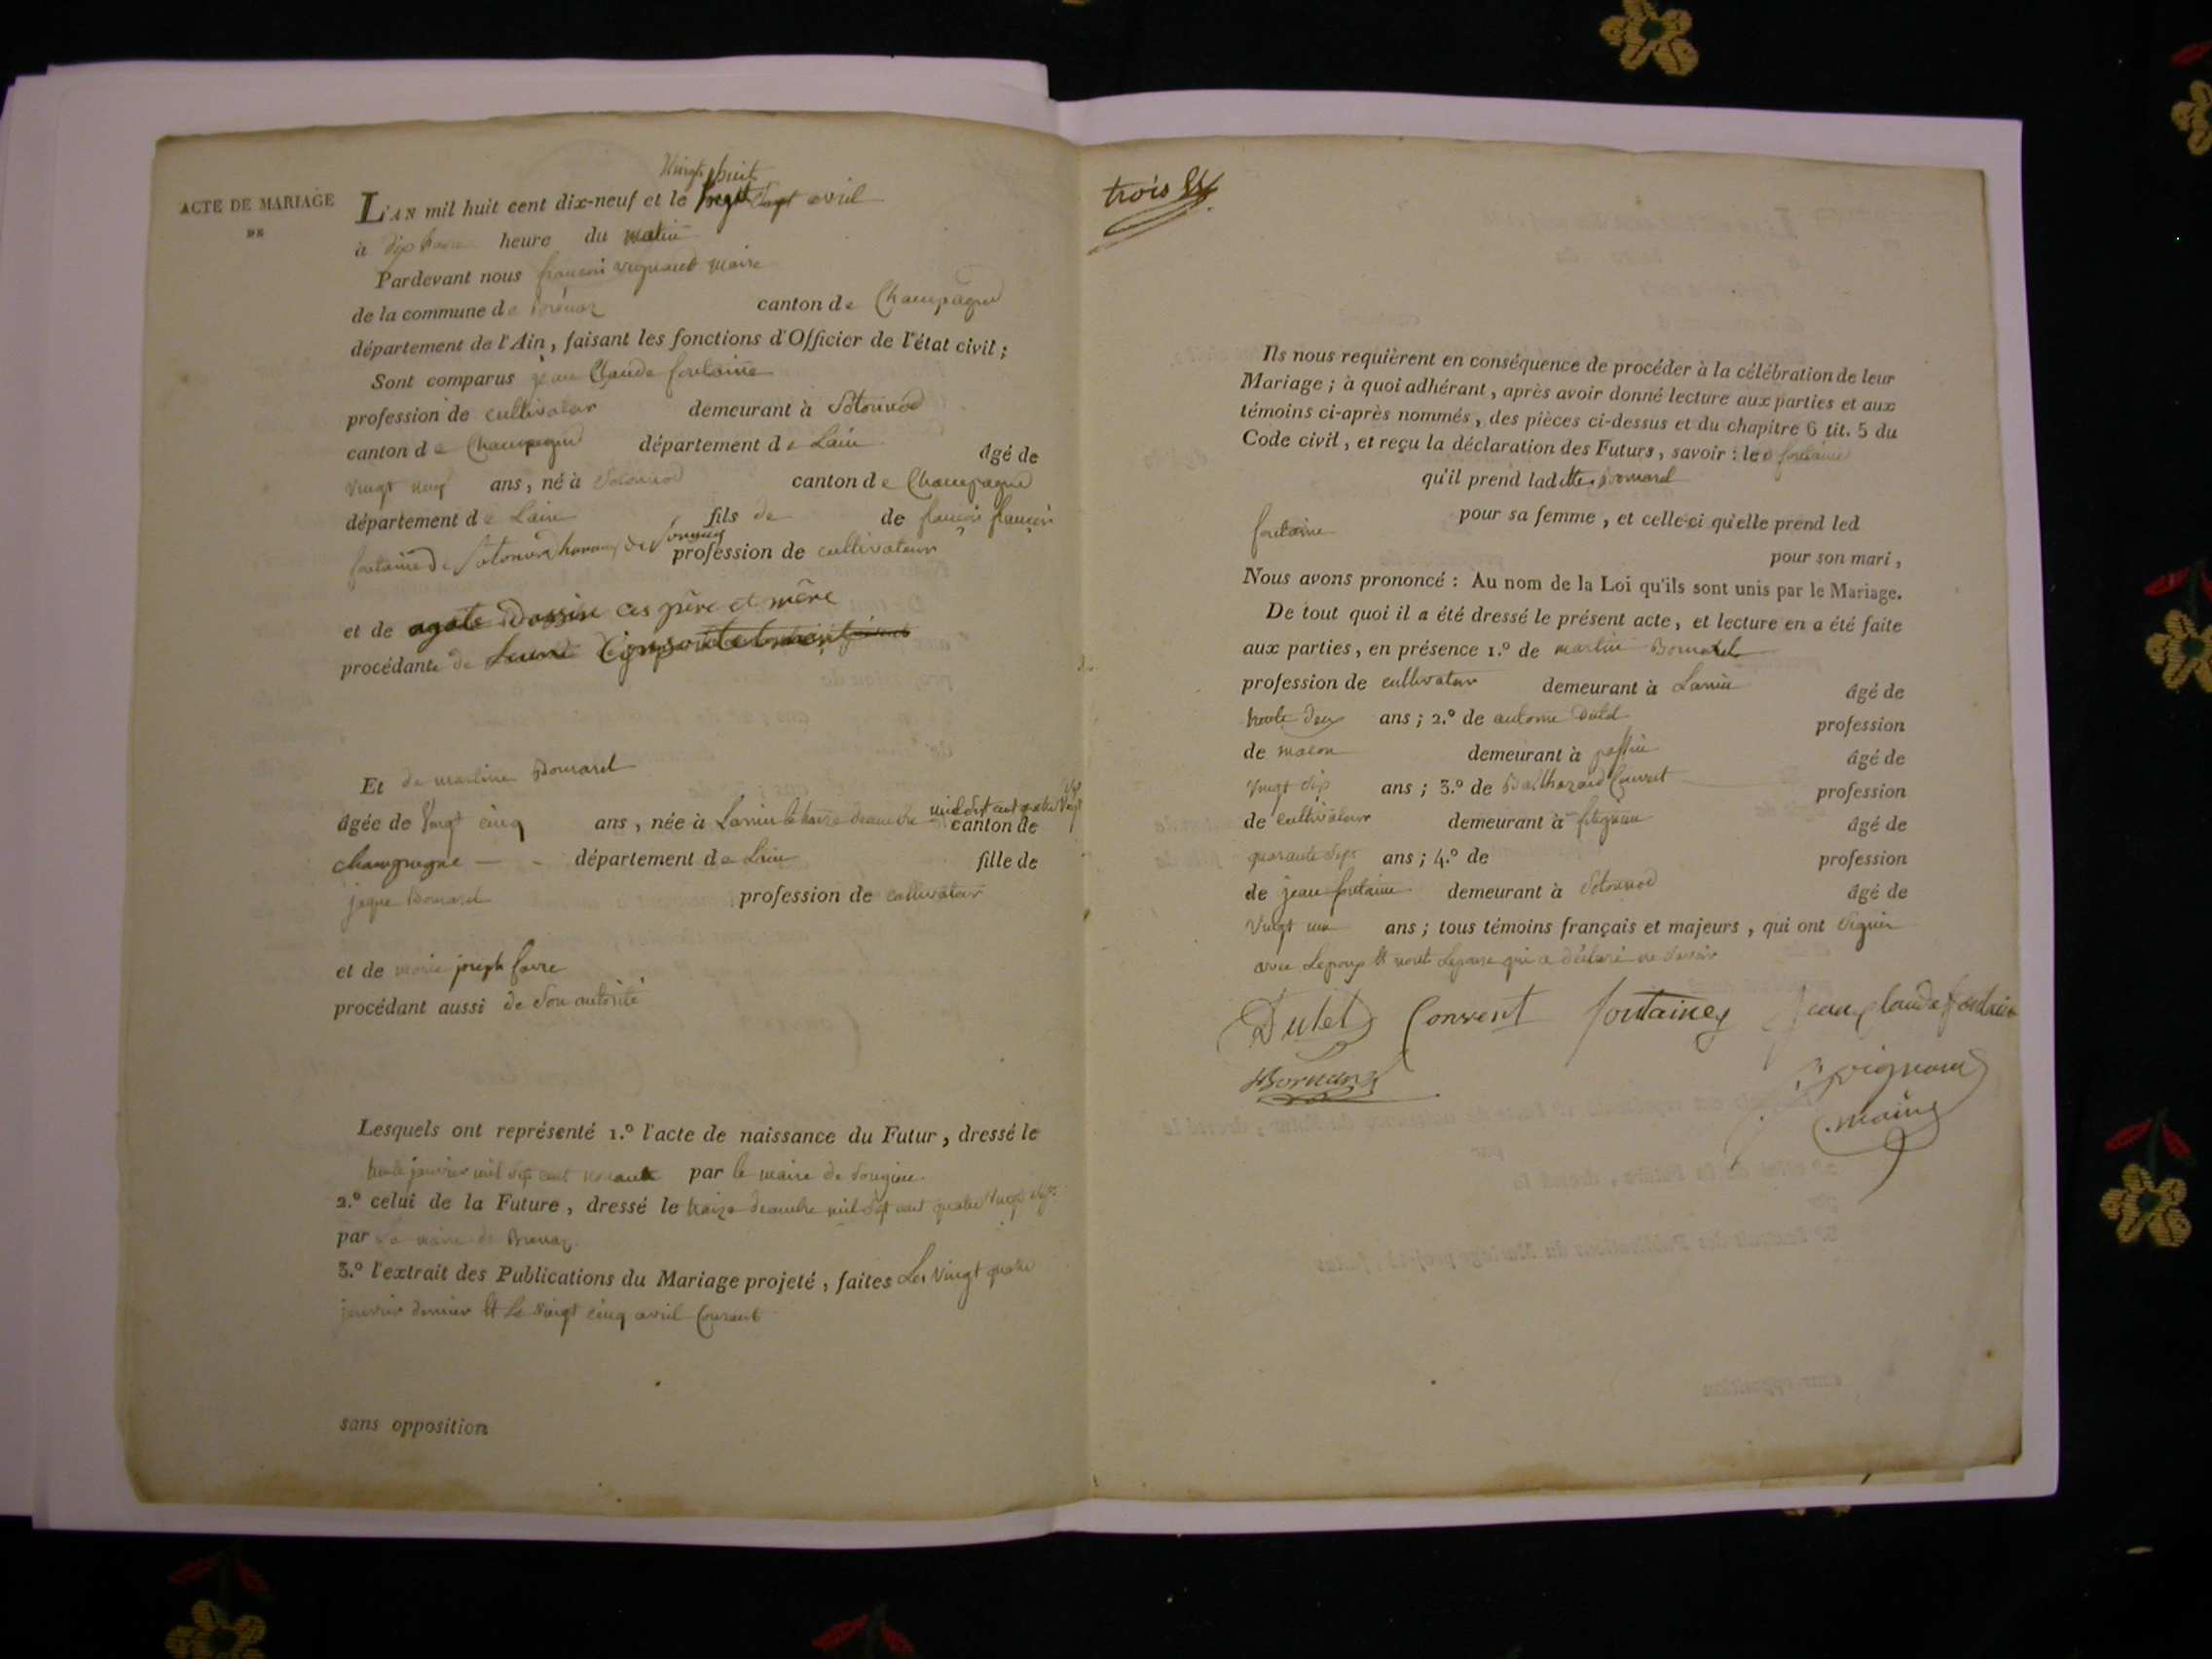 ACTE DE MARIAGE
DE
Vingt huit
L'AN mil huit cent dix-neuf et le vingt Sept avril
à dix heure heure du matin
Pardevant nous françois vignaud maire
de la commune de Brénaz canton de Champagne
département de l'Ain, faisant les fonctions d'Officier de l'état civil ;
Sont comparus jean Claude fontaine
profession de cultivateur demeurant à Sotonod
canton de Champagne département de Lain âgé de
vingt neuf ans, né à Sotonod canton de Champagne
département de Lain fils de de françois françois
fontaine de Sotonod hameau de Songieu profession de cultivateur
et de agate ces père et mère
procédante de Leurs Consentelment
Et de martine Bornarel
âgée de Vingt cinq ans, née à Lanin le treize décembre mil sept cent quatre Vingt canton de
champagne département de Lain fille de
jaque Bornarel profession de cultivateur
et de marie joseph favre
procédant aussi de Son autorité
Lesquels ont représenté 1.º l'acte de naissance du Futur, dressé le
trente janvier mil sept cent nonante par le maire de Songieu
2.º celui de la Future, dressé le treize decembre mil sept cent quatre vingt
par Le maire de Brenaz
3.º l'extrait des Publications du Mariage projeté, faites Les Vingt quatre
janvier dernier Et Le vingt cinq avril Courant
sans opposition
trois
Ils nous requièrent en conséquence de procéder à la célébration de leur
Mariage ; à quoi adhérant, après avoir donné lecture aux parties et aux
témoins ci-après nommés, des pièces ci-dessus et du chapitre 6 tit. 5 du
Code civil, et reçu la déclaration des Futurs, savoir : led fontaine
qu'il prend laditte Bornarel
pour sa femme, et celle-ci qu'elle prend led
fontaine
pour son mari,
Nous avons prononcé : Au nom de la Loi qu'ils sont unis par le Mariage.
De tout quoi il a été dressé le présent acte, et lecture en a été faite
aux parties, en présence 1.º de martin Bornarel
profession de cultivateur demeurant à Lanin âgé de
trente deux ans ; 2.º de antoine Dulet profession
de macon demeurant à passin âgé de
Vingt Six ans ; 3.º de Balthazard Convert profession
de cultivateur demeurant à fitignieu âgé de
quarante ans ; 4.º de profession
de jean fontaine demeurant à Sotonod âgé de
Vingt un ans ; tous témoins français et majeurs, qui ont Signés
avec Lepoux Et nont Lepouse qui a déclaré ne Savoir
Dulet Convert fontaine Jean Claude fontaine
Bornarel
vignaud
maire